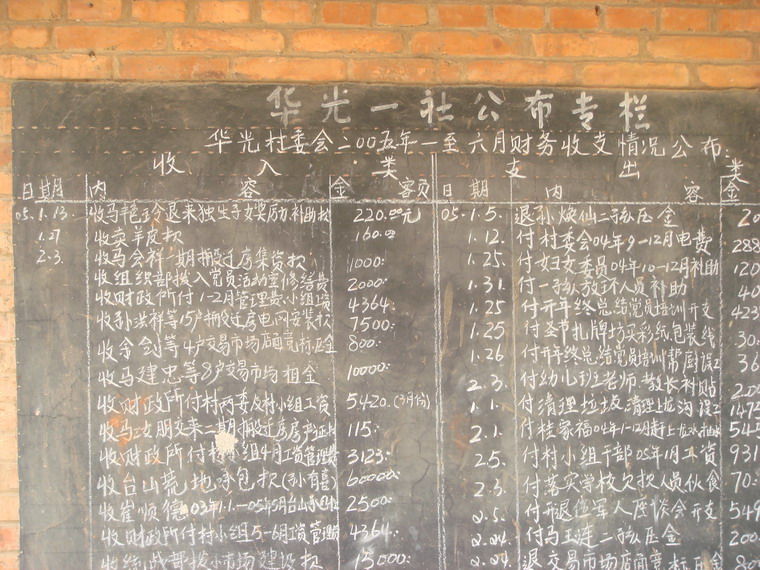 华光一社公布专栏
华光村委会二00五年一至六月财务收支情况公布:
收 入 类 支 出 类
日期 内 容 金 额 日 期 内 容 金
05.1.13. 收马 退来独生子女奖励补助款 220.00元 05.1.5. 退孙焕仙二 压金 20
1.27 收卖羊皮款 160.00 1.12. 付村委会04年9-12月电费 288
2.3. 收马会祥一期搬迁房集资款 1000: 1.25. 付妇女委员04年10-12月补助 120
收组织部拨入党员活动室修缮费 2000: 1.31. 付 放环人员补助 40
收财政所付1-2月管理费小组工资 4364: 1.25 付开年终总结党员培训开支 423
收孙洪祥等15户搬迁房电网安装款 7500: 1.25 付圣节扎牌坊买彩纸包装线 30:
收余剑等4户交易市场店面竞标压金 800: 1.26 付开年终总结党员培训帮厨误工 36
收马建忠等8户交易市场租金 10000: 2.3. 付幼儿班老师 校长补贴 200
收财政所付村两委及村小组工资 5420.(3月份) 1.1. 付清理垃圾清理 沟误工 1475
收马汝朋交来二期搬迁房房产证 115: 2.1. 付桂家福04年1-12月 545
收财政所付村小组4月工资管理费 3123: 2.5. 付村小组干部05年1月工资 931
收台山荒地承包款(孙有喜) 60000: 2.3. 付落实学校欠款人员伙食 70:
收崔顺德03年1.1.-05年5月台山 2500: 2.5. 付开退伍军人座谈会开支 549
收财政所付村小组5-6月工资管理费 4364: 2.24. 付马玉连二 压金 200.
收统战部拨小市场建设款 15000: 2.24. 退交易市场店面竞标压金 800